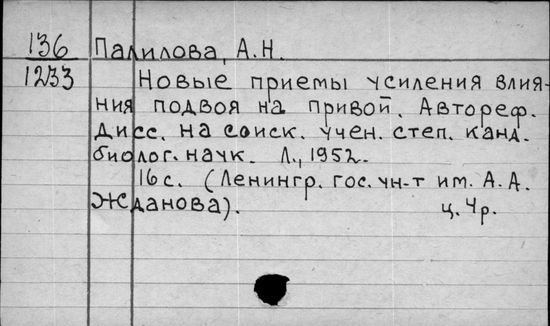 136 Палилова, А.Н.
1233 Новые приемы усиления влия-
ния подвоя на привой. Автореф.
Дисс. на соиск. учен. степ. канд.
биолог. наук. Л., 1952.
16 с. (Ленингр. гос. ун-т им. А. А.
Жданова).
ц. 4 р.